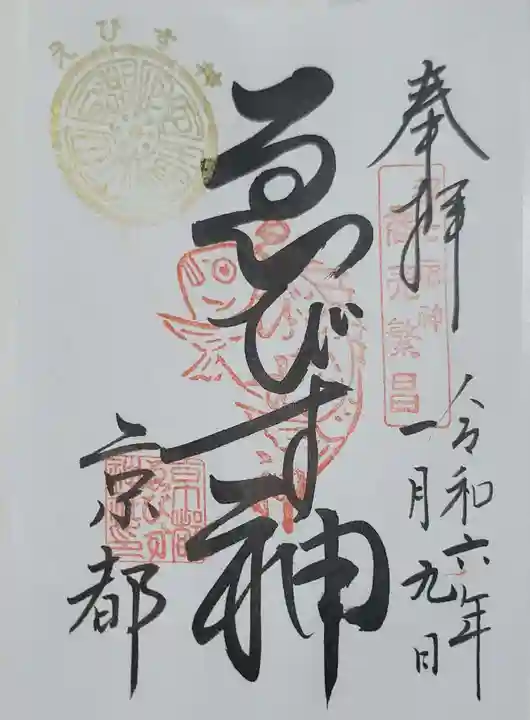 奉拝
令和六年
一月九日
ゑびす神
京都
商売繁昌